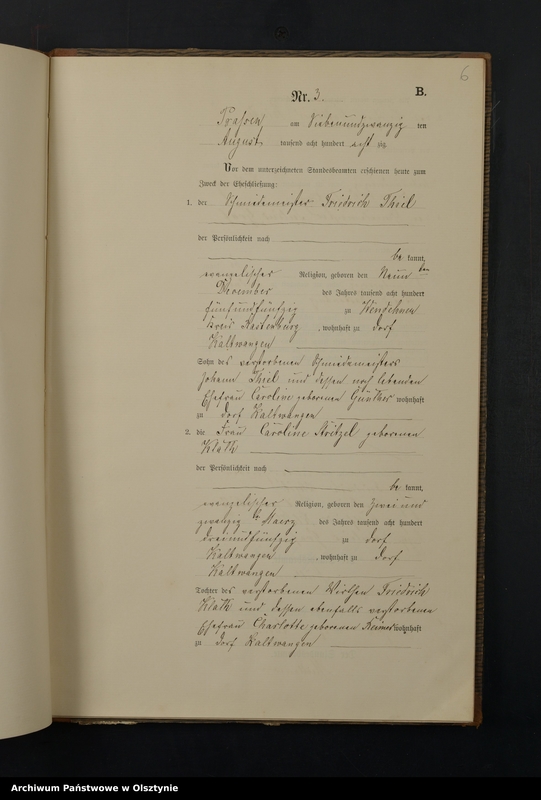 6
Nr. 3. B.
am Siebenundzwanzig ten
August tausend acht hundert acht zig.
Vor dem unterzeichneten Standesbeamten erschienen heute zum
Zweck der Eheschließung:
1. der Schmiedemeister Friedrich Thiel
der Persönlichkeit nach
be kannt,
evangelischer Religion, geboren den Neun ten
November des Jahres tausend acht hundert
fünfundfünfzig zu
Kreis Rastenburg, wohnhaft zu Dorf
Kaltwangen
Sohn des verstorbenen Schmiedemeisters
Johann Thiel und dessen noch lebenden
Ehefrau Caroline geborenen Günther wohnhaft
zu Dorf Kaltwangen
2. die Frau Caroline geborenen
Klatk
der Persönlichkeit nach
be kannt,
evangelischer Religion, geboren den Zwei und
zwanzig ten Maerz des Jahres tausend acht hundert
dreiundfünfzig zu Dorf
Kaltwangen, wohnhaft zu Dorf
Kaltwangen
Tochter des verstorbenen Wirthen Friedrich
Klatk und dessen ebenfalls verstorbenen
Ehefrau Charlotte geborenen wohnhaft
zu Dorf Kaltwangen
Archiwum Państwowe w Olsztynie